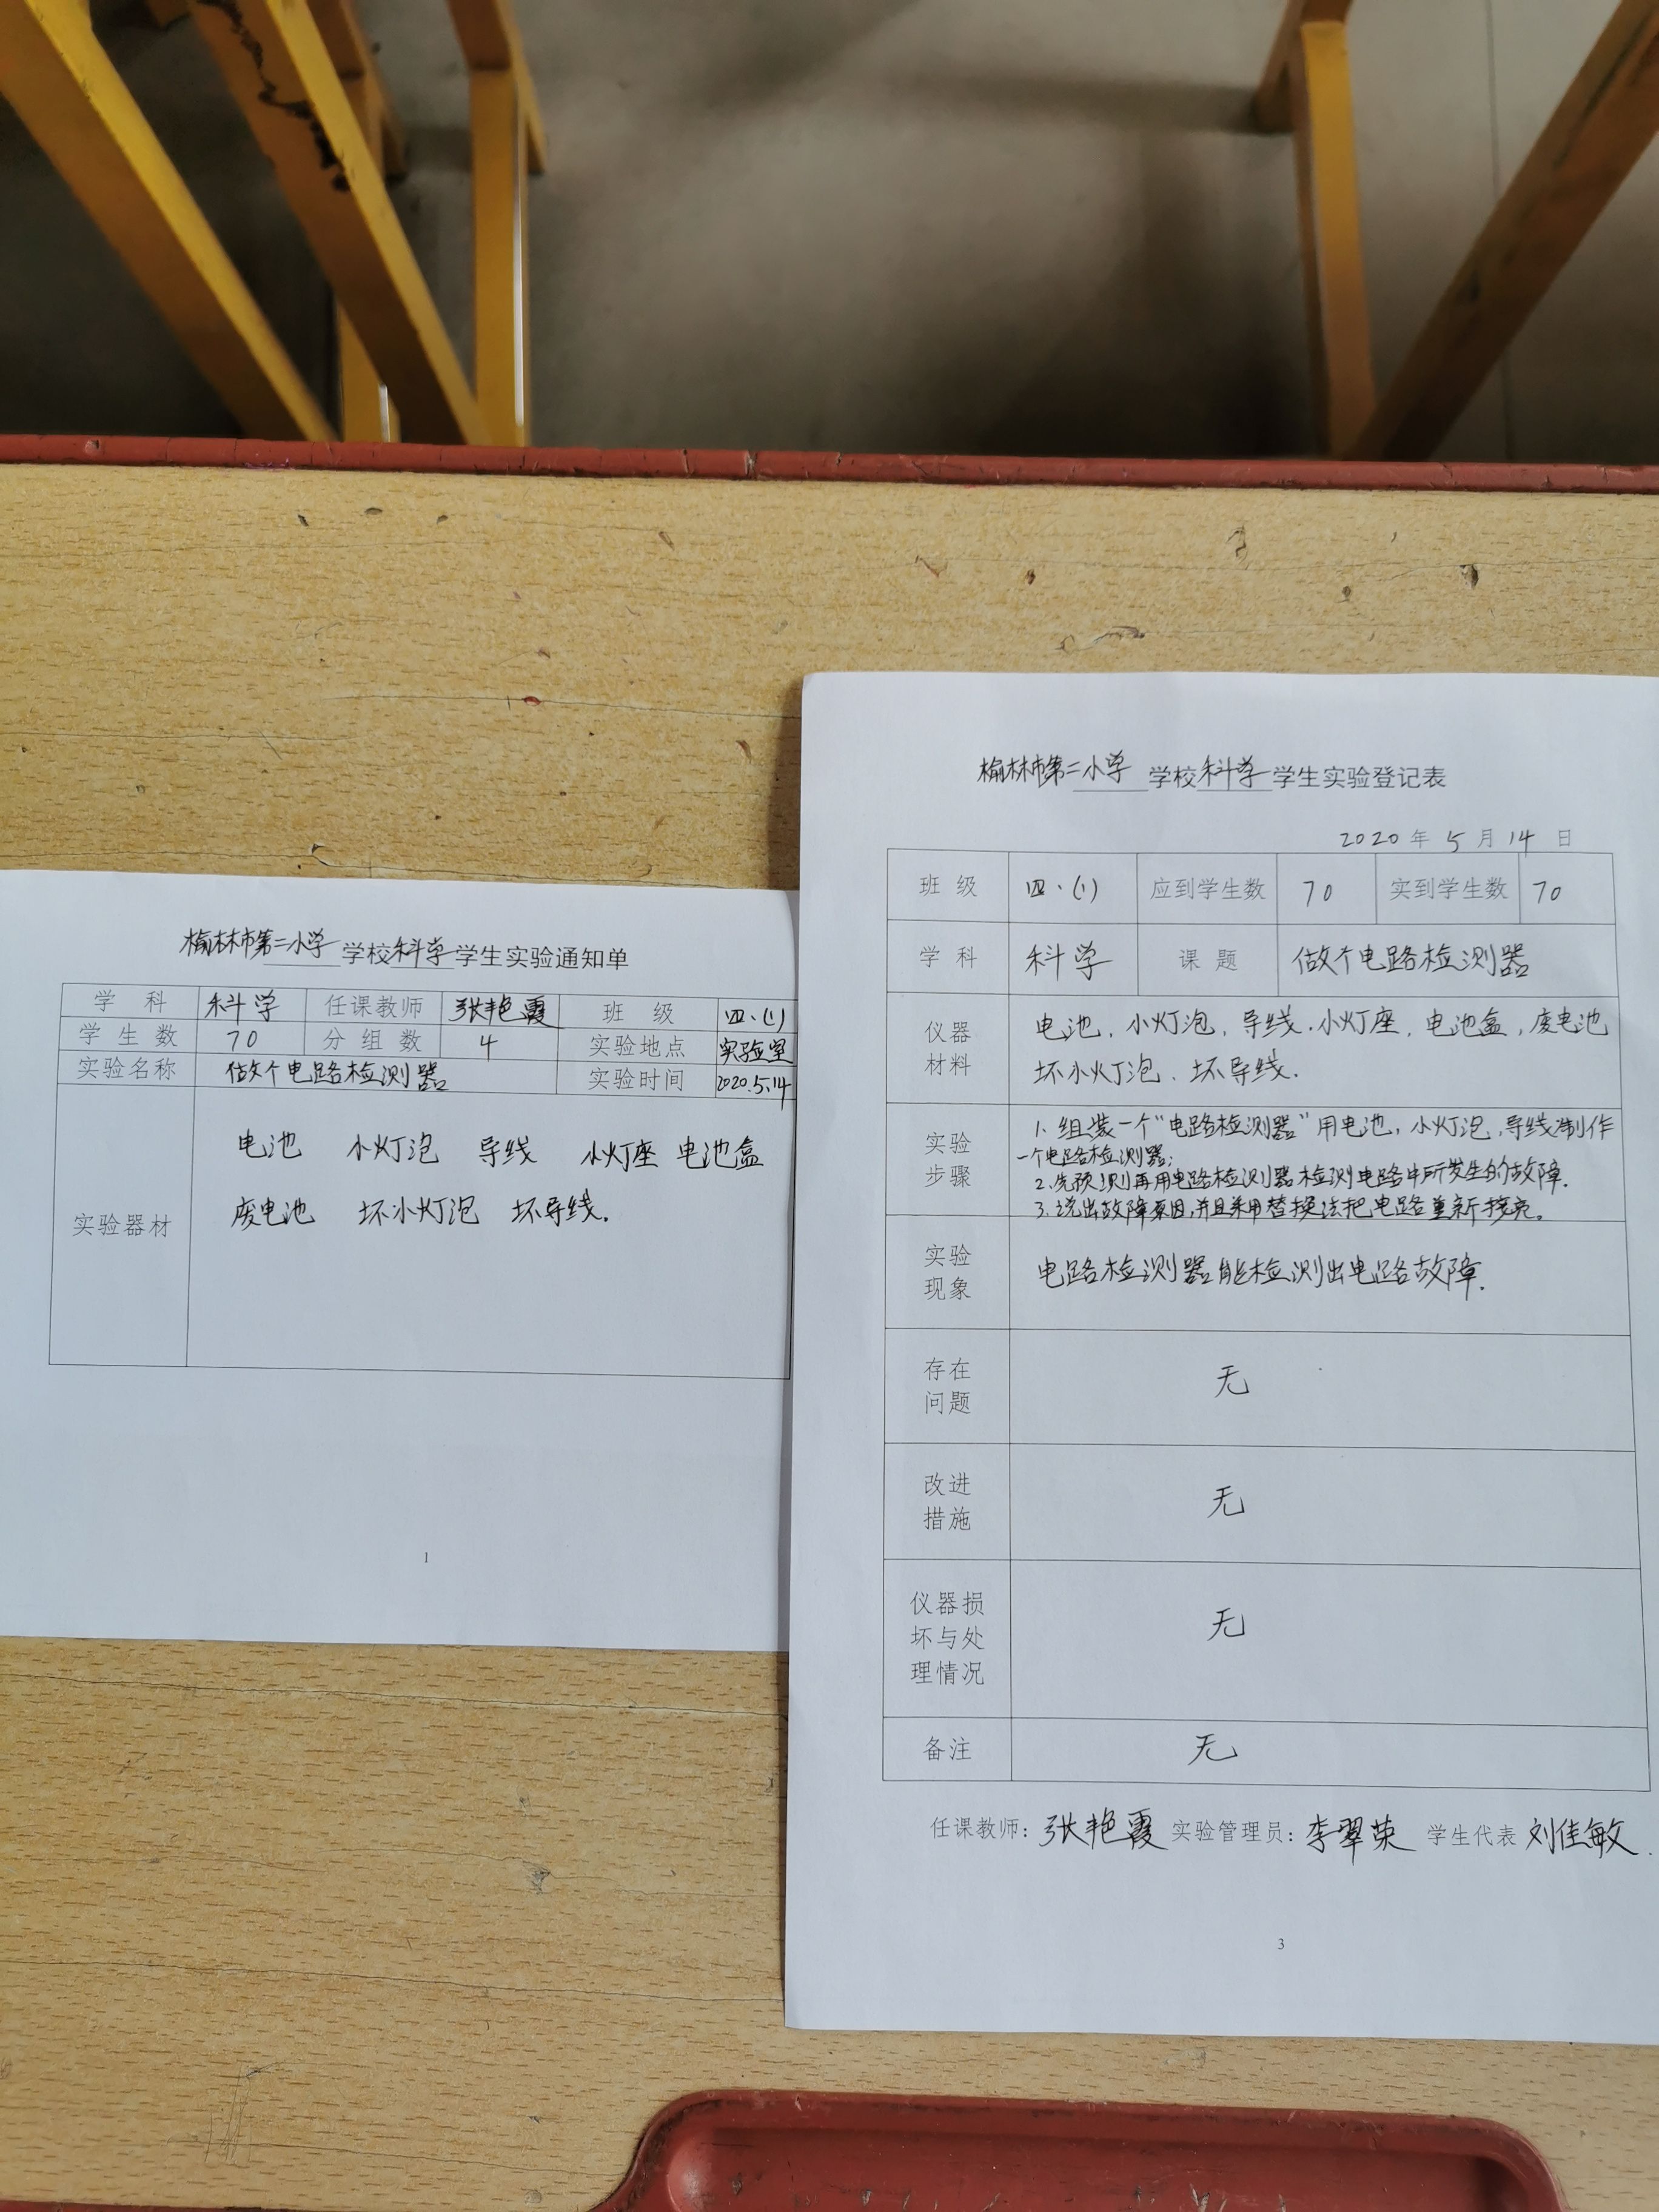 榆林市第二小学学校科学学生实验通知单
学科 科学 任课教师 张艳霞 班级 四.(1)
学生数 70 分组数 4 实验地点 实验室
实验名称 做个电路检测器 实验时间 2020.5.14
实验器材
电池 小灯泡 导线 小灯座 电池盒
废电池 坏小灯泡 坏导线.
1
榆林市第二小学学校科学学生实验登记表
2020年5月14日
班级 四.(1) 应到学生数 70 实到学生数 70
学科 科学 课题 做个电路检测器
仪器
材料
电池,小灯泡,导线.小灯座,电池盒,废电池
坏小灯泡、坏导线.
实验
步骤
1.组装一个“电路检测器”用电池,小灯泡,导线制作
一个电路检测器;
2.先预测再用电路检测器检测电路中所发生的故障.
3.说出故障原因,并且采用替换法把电路重新接亮.
实验
现象
电路检测器能检测出电路故障.
存在
问题
无
改进
措施
无
仪器损
坏与处
理情况
无
备注 无
任课教师:张艳霞 实验管理员:李翠英 学生代表 刘佳敏.
3